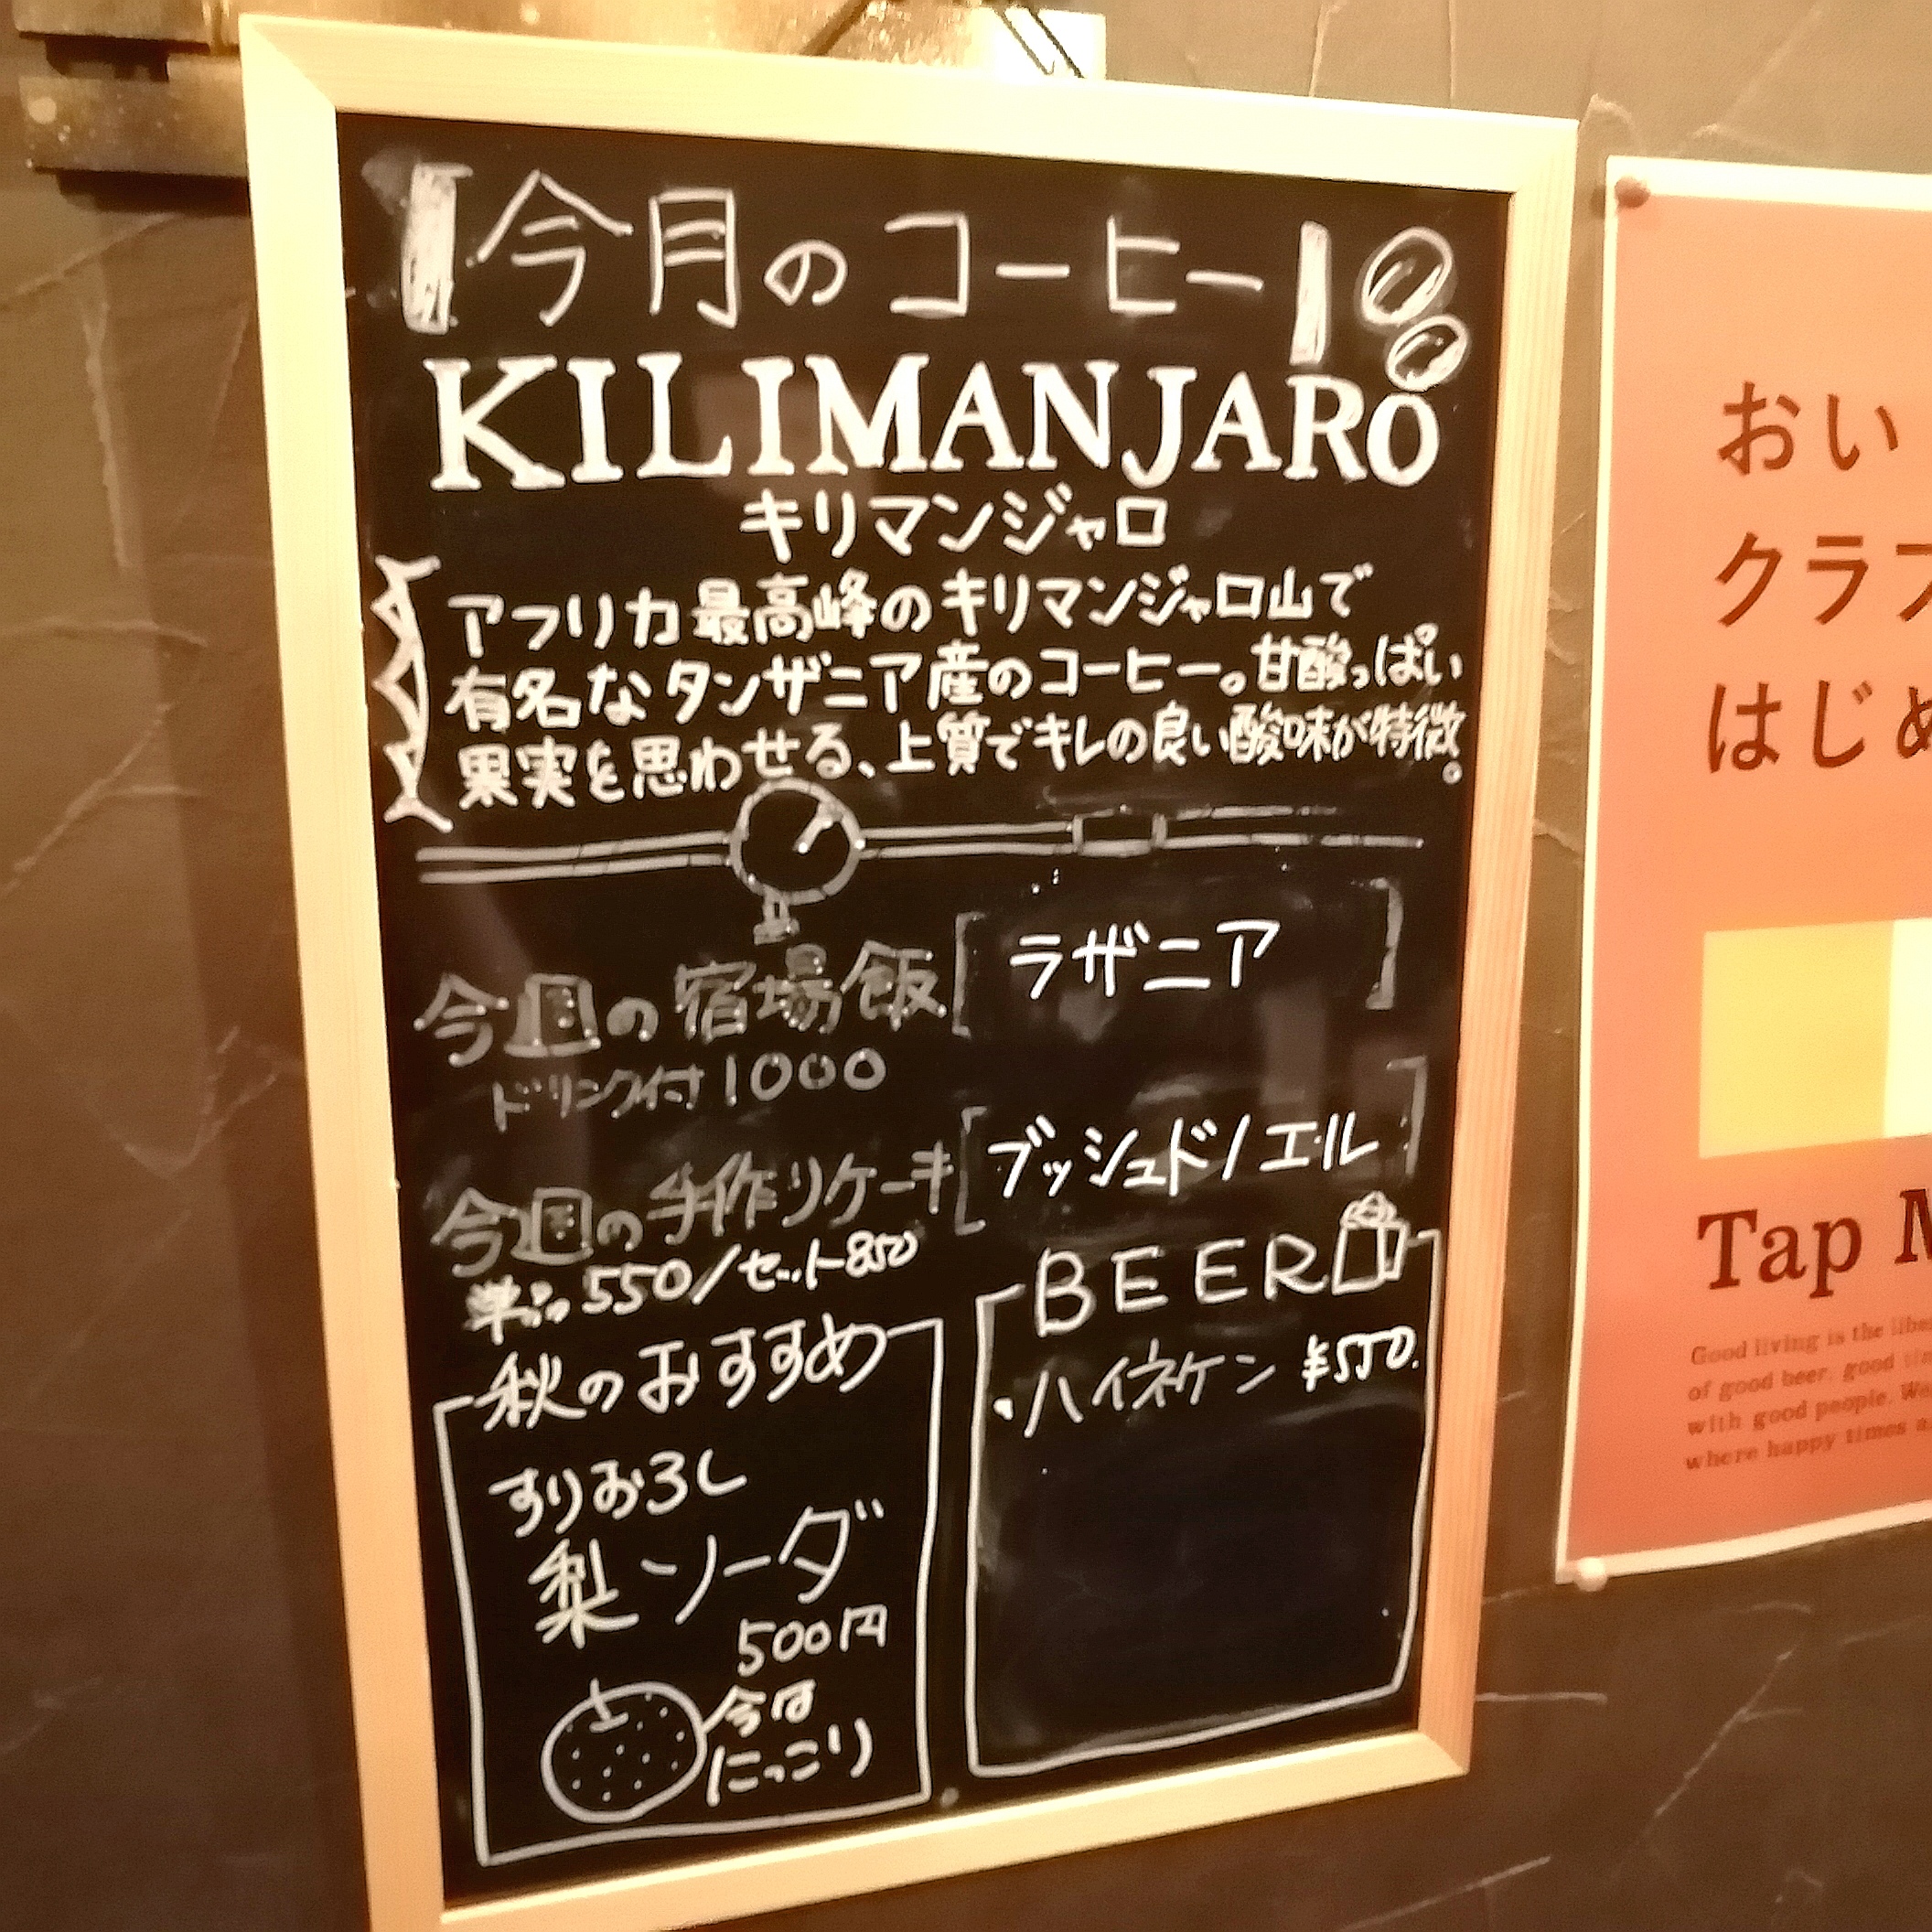 今月のコーヒー
KILIMANJARO
キリマンジャロ
アフリカ最高峰のキリマンジャロ山で
有名なタンザニア産のコーヒー。甘酸っぱい
果実を思わせる、上質でキレの良い酸味が特徴。
今週の宿場飯 [ ラザニア ]
ドリンク付1000
今週の手作りケーキ [ ブッシュドノエル ]
単品550/セット850
秋のおすすめ
すりおろし
梨ソーダ
500円
今は
にっこり
BEER
・ハイネケン ¥550.
おい
クラフ
はじめ
Tap M
Good living is the
of good beer, good
with good people.
where happy times